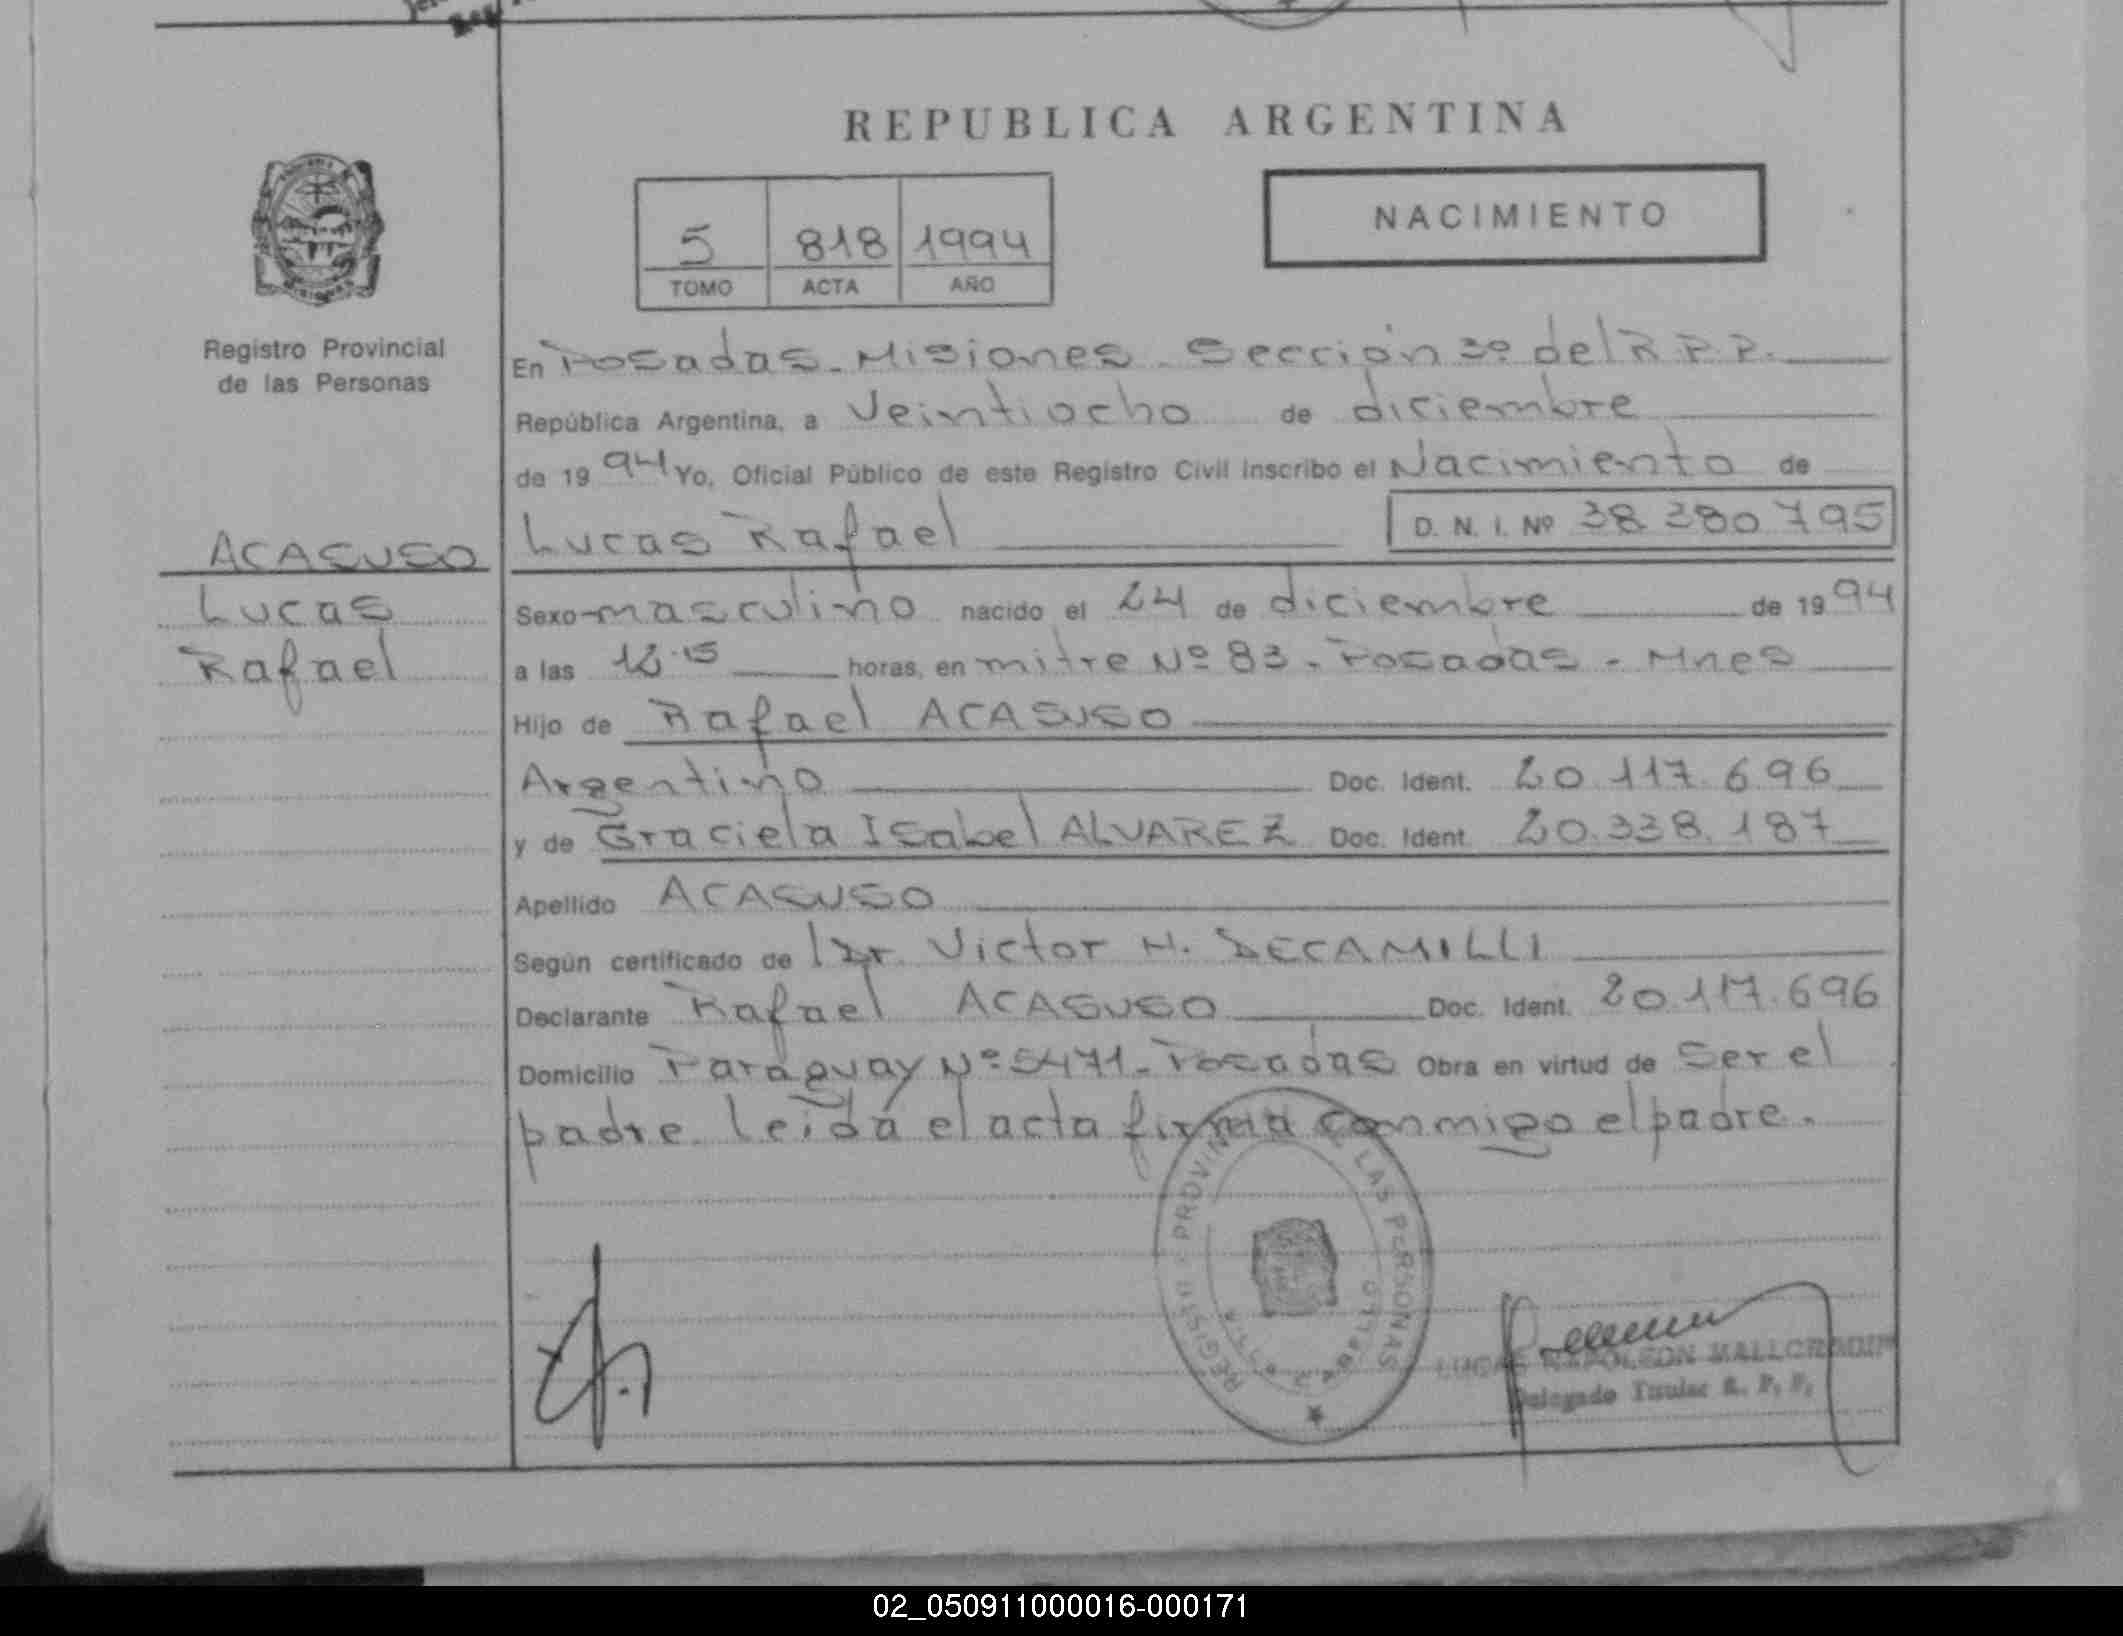 REPUBLICA ARGENTINA
NACIMIENTO
5 818 1994
TOMO ACTA AÑO
Registro Provincial
de las Personas
ACASUSO
Lucas
Rafael
En Posadas - Misiones - Sección 3º del R.P.P.
República Argentina, a Veintiocho de diciembre
de 1994 Yo, Oficial Público de este Registro Civil inscribo el Nacimiento de
Lucas Rafael D. N. I. Nº 38 380 795
Sexo masculino nacido el 24 de diciembre de 1994
a las 12.15 horas, en mitre Nº 83 - Posadas - Mnes
Hijo de Rafael ACASUSO
Argentino Doc. Ident. 20.117.696
y de Graciela Isabel ALVAREZ Doc. Ident. 20.338.187
Apellido ACASUSO
Según certificado de Dr. Victor H. DECAMILLI
Declarante Rafael ACASUSO Doc. Ident. 20.117.696
Domicilio Paraguay Nº 5471 - Posadas Obra en virtud de Ser el
padre. Leida el acta firma conmigo el padre.
PROVIN LAS PERSONAS
LUCAS NAPOLEON
Delegado Titular R. P. P.
02_050911000016-000171